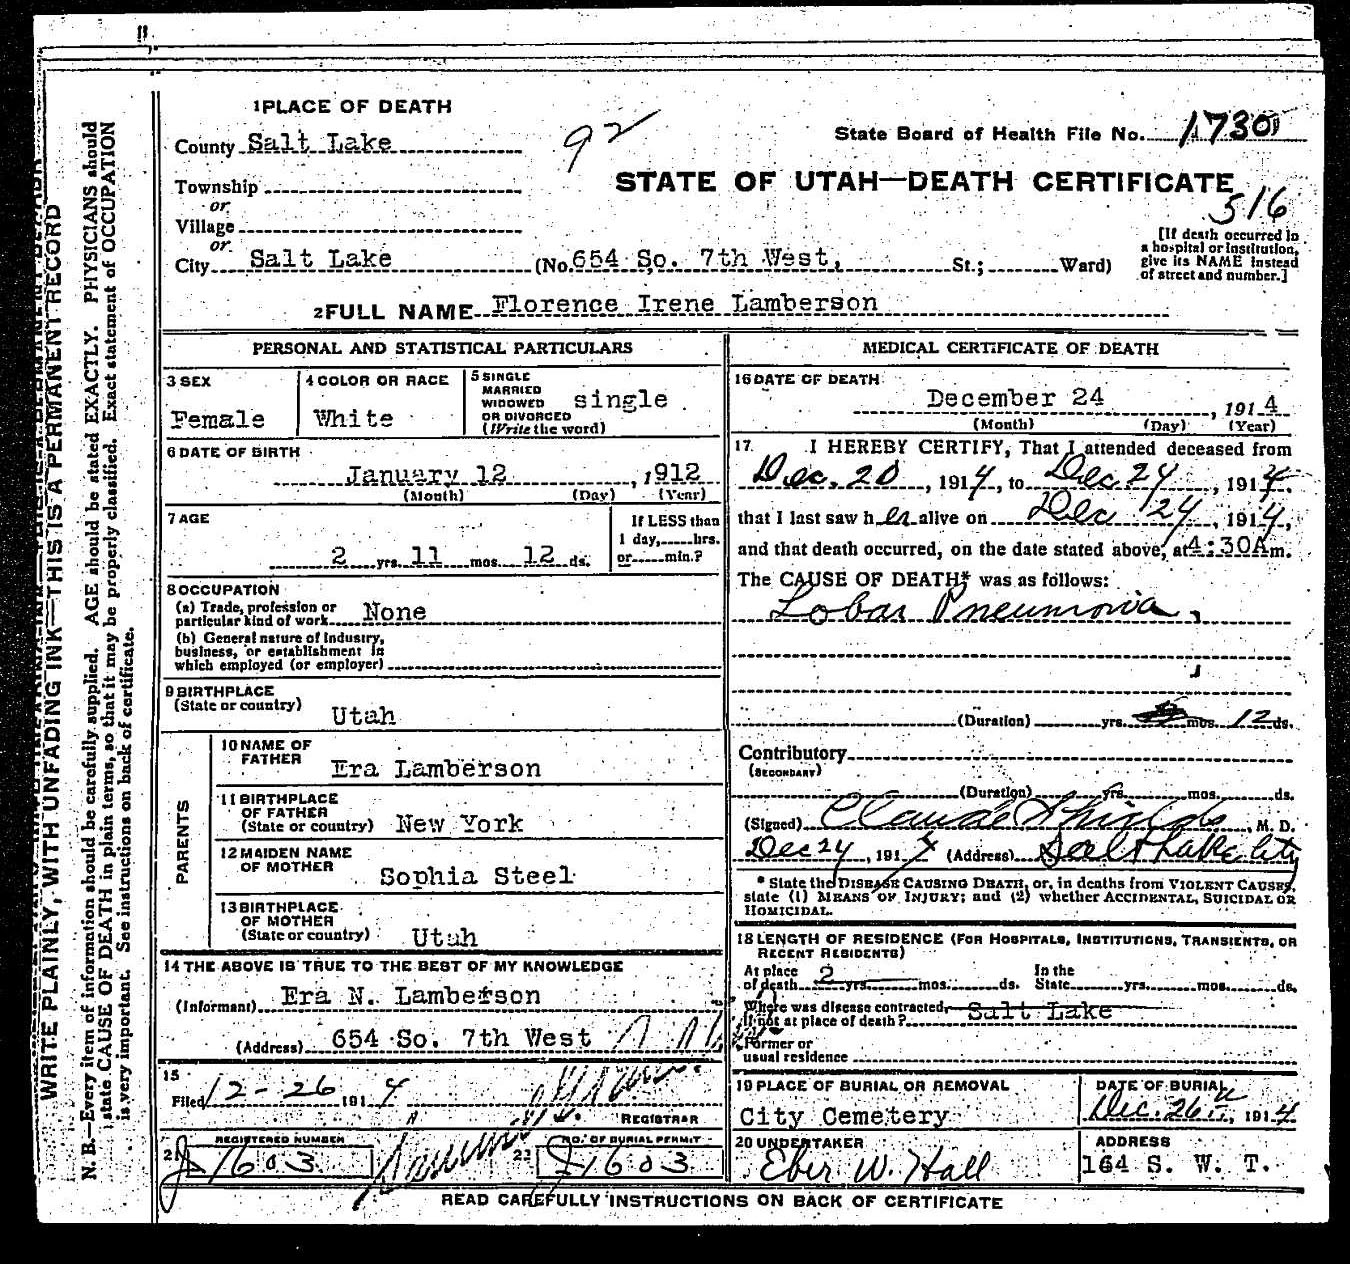 1 PLACE OF DEATH
County Salt Lake
92
State Board of Health File No. 1730
Township
or
STATE OF UTAH—DEATH CERTIFICATE
516
Village
or
City Salt Lake (No. 654 So. 7th West, St.; Ward)
[If death occurred in
a hospital or institution,
give its NAME instead
of street and number.]
2 FULL NAME Florence Irene Lamberson
PERSONAL AND STATISTICAL PARTICULARS
3 SEX
Female
4 COLOR OR RACE
White
5 SINGLE
MARRIED
WIDOWED
OR DIVORCED
(Write the word)
single
6 DATE OF BIRTH
January 12, 1912
(Month) (Day) (Year)
7 AGE
2 yrs. 11 mos. 12 ds.
If LESS than
1 day, hrs.
or min.?
8 OCCUPATION
(a) Trade, profession or
particular kind of work None
(b) General nature of Industry,
business, or establishment in
which employed (or employer)
9 BIRTHPLACE
(State or country)
Utah
PARENTS
10 NAME OF
FATHER
Era Lamberson
11 BIRTHPLACE
OF FATHER
(State or country) New York
12 MAIDEN NAME
OF MOTHER
Sophia Steel
13 BIRTHPLACE
OF MOTHER
(State or country) Utah
14 THE ABOVE IS TRUE TO THE BEST OF MY KNOWLEDGE
(Informant) Era N. Lamberson
(Address) 654 So. 7th West
15
Filed 12-26 1914
REGISTRAR
21 REGISTERED NUMBER
J 1603
22 NO. OF BURIAL PERMIT
J 1603
MEDICAL CERTIFICATE OF DEATH
16 DATE OF DEATH
December 24, 1914
(Month) (Day) (Year)
17. I HEREBY CERTIFY, That I attended deceased from
Dec. 20, 1914, to Dec 24, 1914,
that I last saw her alive on Dec 24, 1914,
and that death occurred, on the date stated above, at 4:30A m.
The CAUSE OF DEATH* was as follows:
Lobar Pneumonia,
(Duration) yrs. mos. 12 ds.
Contributory
(SECONDARY)
(Duration) yrs. mos. ds.
(Signed) Claude Shields, M. D.
Dec 24, 1914 (Address) Salt Lake City
* State the DISEASE CAUSING DEATH, or, in deaths from VIOLENT CAUSES,
state (1) MEANS OF INJURY; and (2) whether ACCIDENTAL, SUICIDAL OR
HOMICIDAL.
18 LENGTH OF RESIDENCE (FOR HOSPITALS, INSTITUTIONS, TRANSIENTS, OR
RECENT RESIDENTS)
At place
of death 2 yrs. mos. ds.
In the
State yrs. mos. ds.
Where was disease contracted,
If not at place of death? Salt Lake
Former or
usual residence
19 PLACE OF BURIAL OR REMOVAL
City Cemetery
DATE OF BURIAL
Dec. 26, 1914
20 UNDERTAKER
Eber W. Hall
ADDRESS
164 S. W. T.
READ CAREFULLY INSTRUCTIONS ON BACK OF CERTIFICATE
WRITE PLAINLY, WITH UNFADING INK—THIS IS A PERMANENT RECORD
N. B.—Every item of information should be carefully supplied. AGE should be stated EXACTLY. PHYSICIANS should
state CAUSE OF DEATH in plain terms, so that it may be properly classified. Exact statement of OCCUPATION
is very important. See instructions on back of certificate.